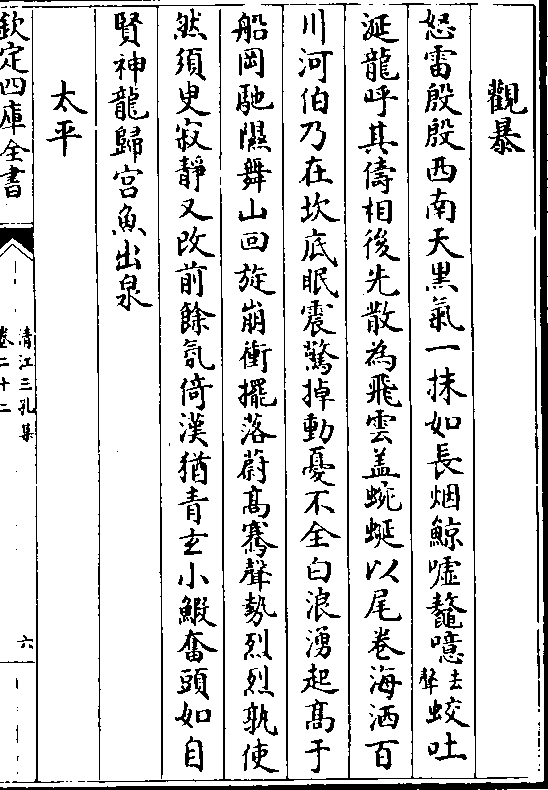 觀暴
怒雷殷殷西南天黑氣一抹如長烟鯨噓鼇噫去聲蛟吐
涎龍呼其儔相後先散為飛雲盖蜿蜒以尾卷海洒百
川河伯乃在坎底眠震驚掉動憂不全白浪湧起髙于
船岡馳隰舞山回旋崩衝擺落蔚髙騫聲勢烈烈孰使
然須臾寂靜又改前餘氛倚漢猶青玄小鰕奮頭如自
賢神龍歸宫魚出泉
太平
欽定四庫全書
清江三孔集
卷二十二
六